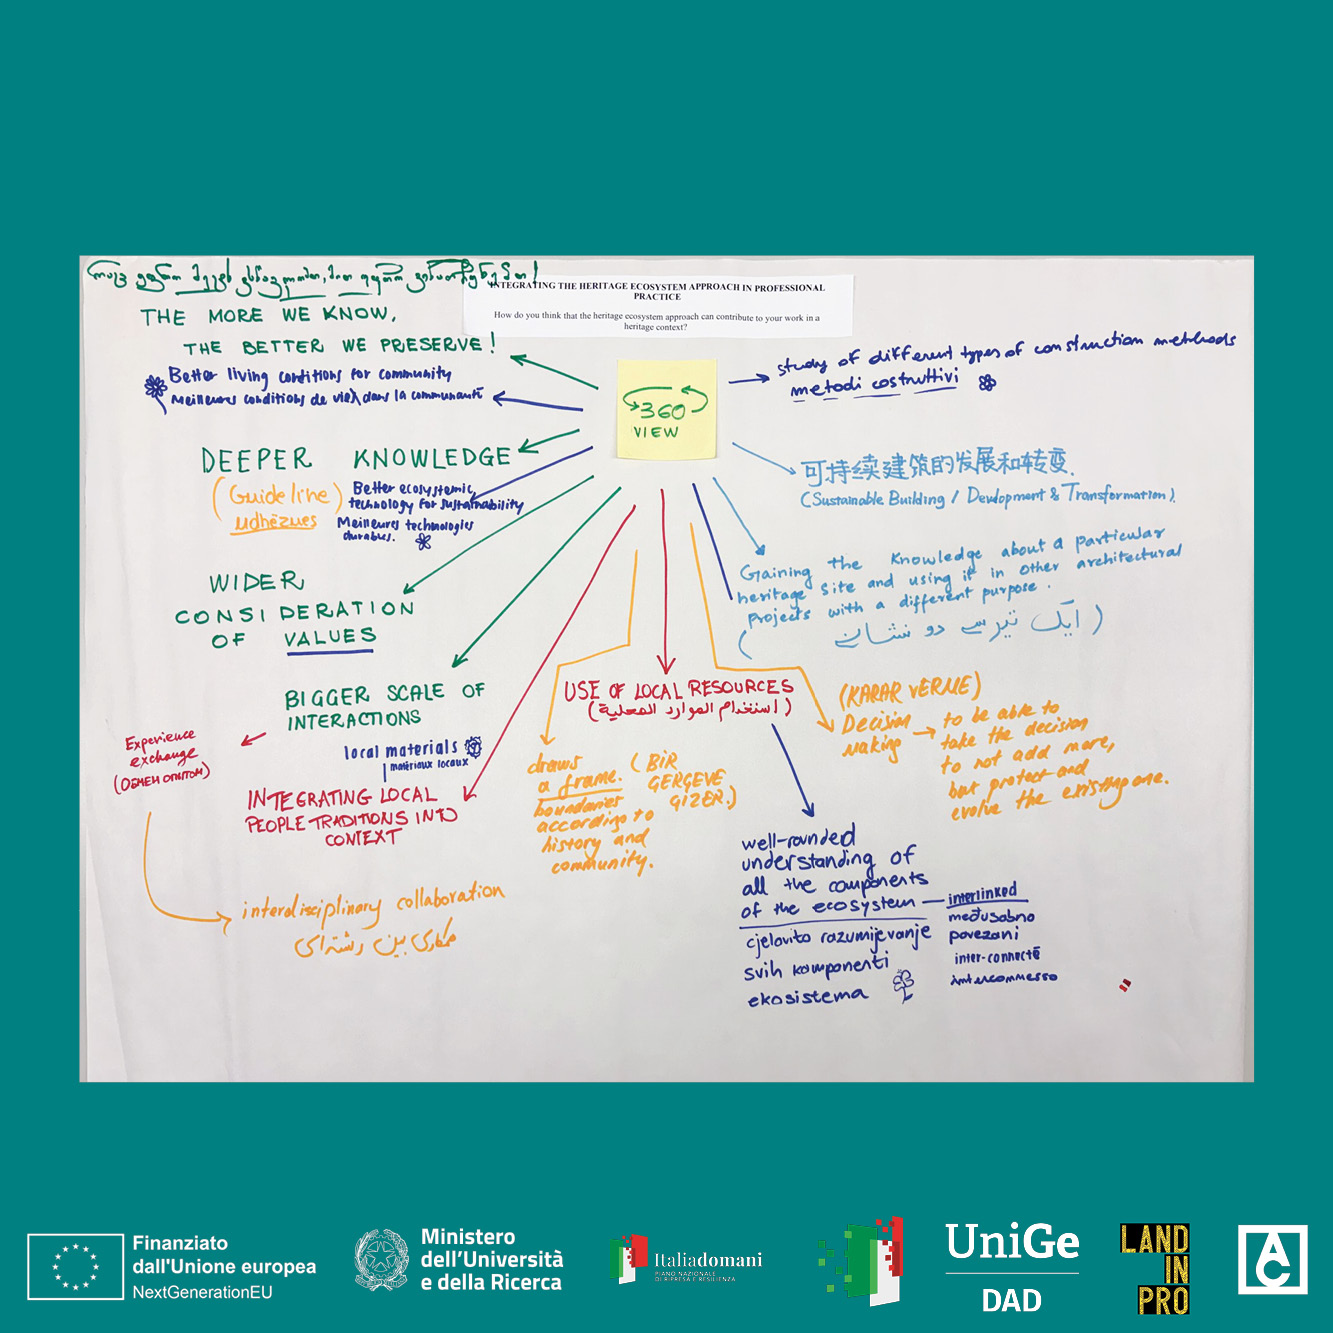 INTEGRATING THE HERITAGE ECOSYSTEM APPROACH IN PROFESSIONAL
PRACTICE
How do you think that the heritage ecosystem approach can contribute to your work in a
heritage context?
THE MORE WE KNOW,
THE BETTER WE PRESERVE!
Better living conditions for community
Meilleures conditions de vie dans la communauté
360
VIEW
study of different types of construction methods
metodi costruttivi
DEEPER KNOWLEDGE
(Guideline)
udhëzues
Better ecosystemic
technology for sustainability
Meilleures technologies
durables.
可持续建筑的发展和转变.
(Sustainable Building / Development & Transformation).
Gaining the knowledge about a particular
heritage site and using it in other architectural
projects with a different purpose.
(ایک تیر سے دو نشانے)
WIDER
CONSIDERATION
OF VALUES
BIGGER SCALE OF
INTERACTIONS
Experience
exchange
(ОБМЕН ОПЫТОМ)
local materials
matériaux locaux
INTEGRATING LOCAL
PEOPLE TRADITIONS INTO
CONTEXT
interdisciplinary collaboration
همکاری بین رشته‌ای
USE OF LOCAL RESOURCES
(استخدام الموارد المحلية)
draws
a frame. (BIR
GERGEVE
GIZER.)
boundaries
according to
history and
community.
(KARAR VERME)
Decision
Making
to be able to
take the decision
to not add more,
but protect and
evolve the existing one.
well-rounded
understanding of
all the components
of the ecosystem
cjelovito razumijevanje
svih komponenti
ekosistema
interlinked
međusobno
povezani
inter-connecté
interconnesso
Finanziato
dall'Unione europea
NextGenerationEU
Ministero
dell'Università
e della Ricerca
Italiadomani
PIANO NAZIONALE
DI RIPRESA E RESILIENZA
UniGe
DAD
LAND
IN
PRO
AC